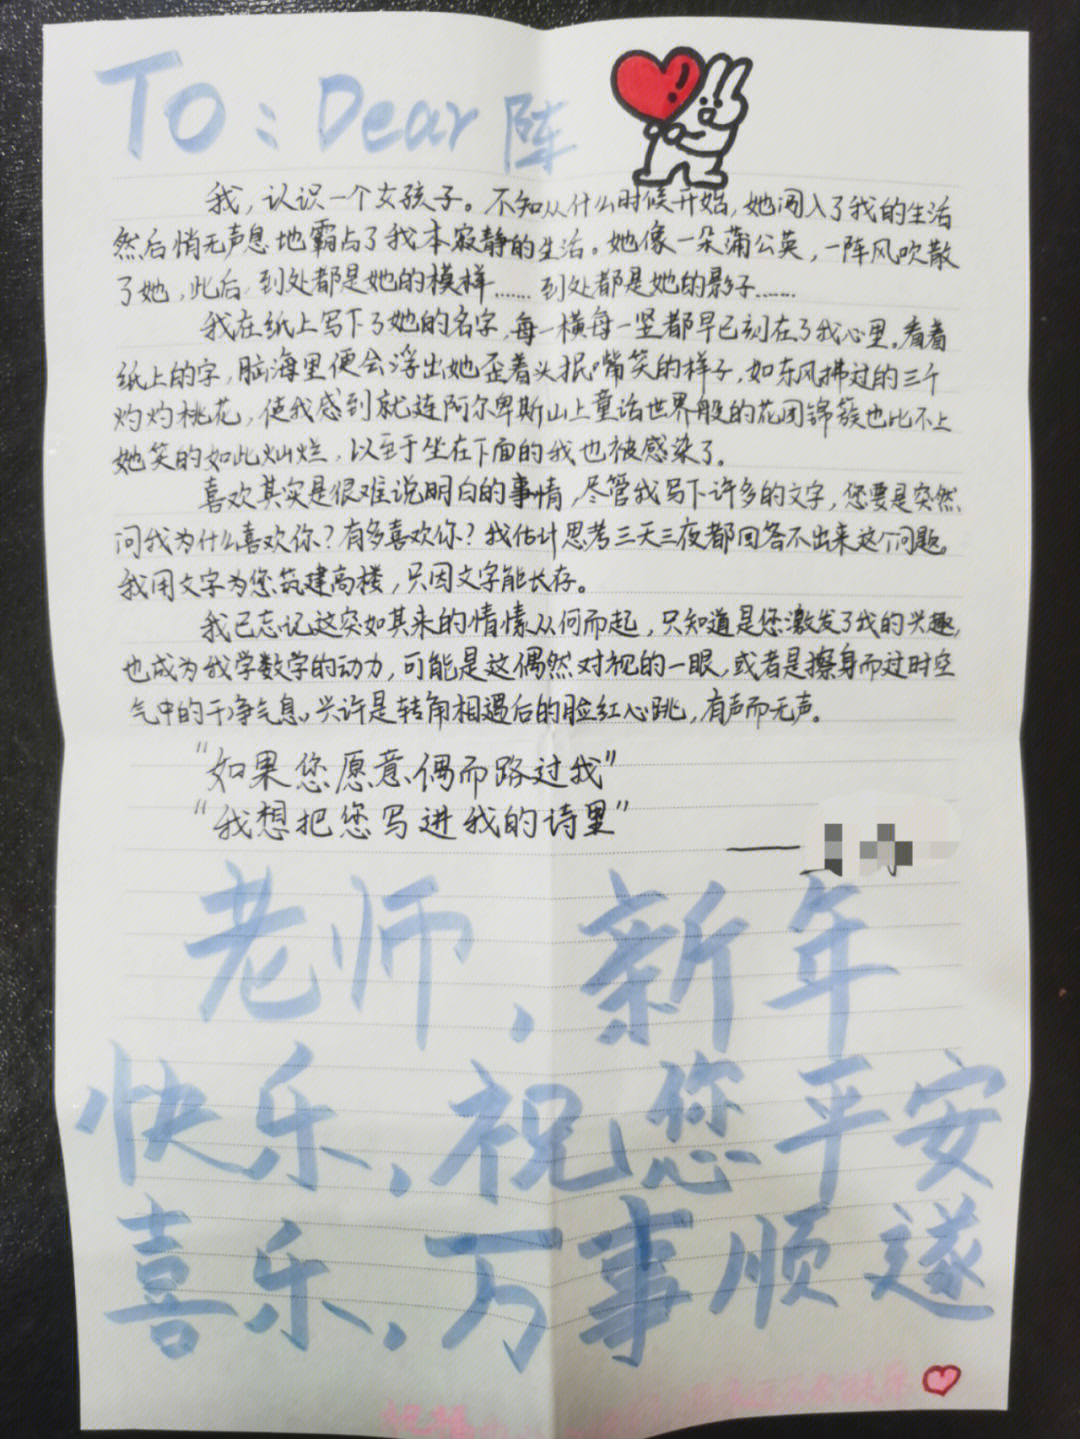 TO：Dear 陈
我，认识一个女孩子。不知从什么时候开始，她闯入了我的生活
然后悄无声息地霸占了我本寂静的生活。她像一朵蒲公英，一阵风吹散
了她，此后，到处都是她的模样……到处都是她的影子……
我在纸上写下了她的名字，每一横每一竖都早已刻在了我心里。看着
纸上的字，脑海里便会浮出她歪着头抿嘴笑的样子，如东风拂过的三千
灼灼桃花，使我感到就连阿尔卑斯山上童话世界般的花团锦簇也比不上
她笑的如此灿烂，以至于坐在下面的我也被感染了。
喜欢其实是很难说明白的事情，尽管我写下许多的文字，您要是突然
问我为什么喜欢你？有多喜欢你？我估计思考三天三夜都回答不出来这个问题。
我用文字为您筑建高楼，只因文字能长存。
我已忘记这突如其来的情愫从何而起，只知道是您激发了我的兴趣，
也成为我学数学的动力，可能是这偶然对视的一眼，或者是擦身而过时空
气中的干净气息，兴许是转角相遇后的脸红心跳，有声而无声。
“如果您愿意偶而路过我”
“我想把您写进我的诗里”
——
老师，新年
快乐，祝您平安
喜乐，万事顺遂